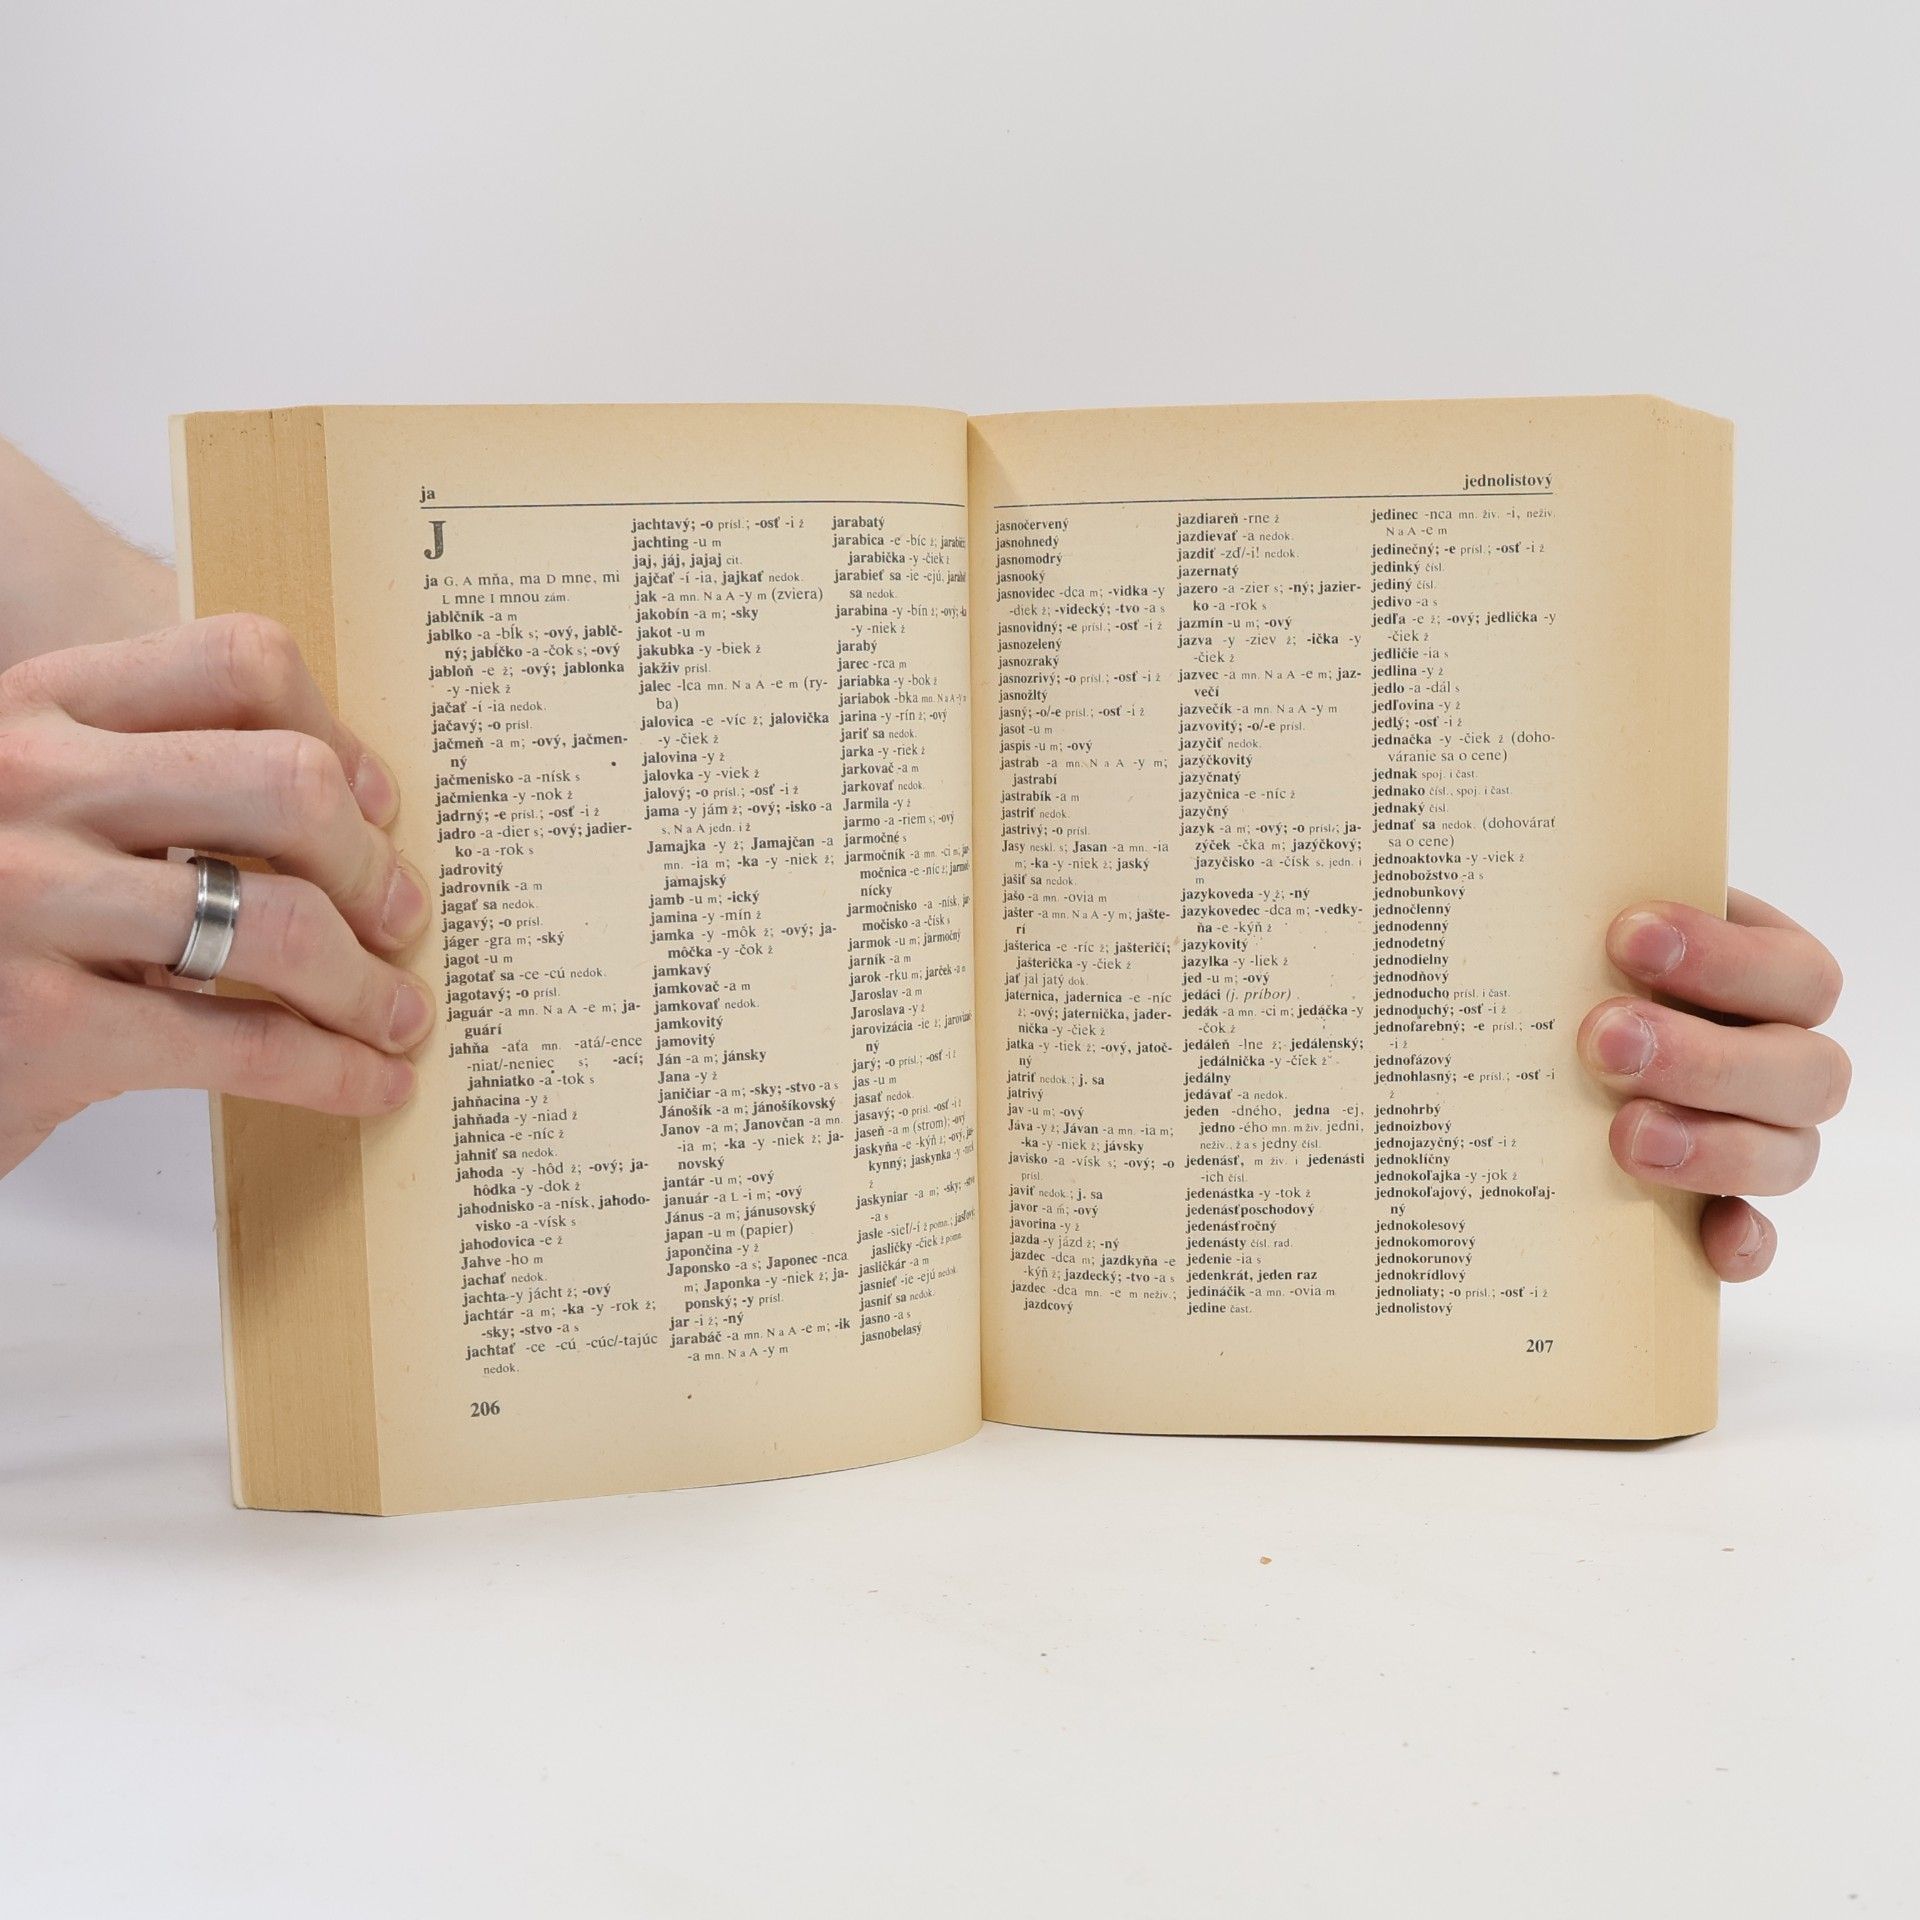 ja
J
ja G, A mňa, ma D mne, mi
L mne I mnou zám.
jablčník -a m
jablko -a -bĺk s; -ový, jablč-
ný; jabĺčko -a -čok s; -ový
jabloň -e ž; -ový; jablonka
-y -niek ž
jačať -í -ia nedok.
jačavý; -o prísl.
jačmeň -a m; -ový, jačmen-
ný
jačmenisko -a -nísk s
jačmienka -y -nok ž
jadrný; -e prísl.; -osť -i ž
jadro -a -dier s; -ový; jadier-
ko -a -rok s
jadrovitý
jadrovník -a m
jagať sa nedok.
jagavý; -o prísl.
jáger -gra m; -ský
jagot -u m
jagotať sa -ce -cú nedok.
jagotavý; -o prísl.
jaguár -a mn. N a A -e m; ja-
guárí
jahňa -aťa mn. -atá/-ence
-niat/-neniec s; -ací;
jahniatko -a -tok s
jahňacina -y ž
jahňada -y -niad ž
jahnica -e -níc ž
jahniť sa nedok.
jahoda -y -hôd ž; -ový; ja-
hôdka -y -dok ž
jahodnisko -a -nísk, jahodo-
visko -a -vísk s
jahodovica -e ž
Jahve -ho m
jachať nedok.
jachta -y jácht ž; -ový
jachtár -a m; -ka -y -rok ž;
-sky; -stvo -a s
jachtať -ce -cú -cúc/-tajúc
nedok.
jachtavý; -o prísl.; -osť -i ž
jachting -u m
jaj, jáj, jajaj cit.
jajčať -í -ia, jajkať nedok.
jak -a mn. N a A -y m (zviera)
jakobín -a m; -sky
jakot -u m
jakubka -y -biek ž
jakživ prísl.
jalec -lca mn. N a A -e m (ry-
ba)
jalovica -e -víc ž; jalovička
-y -čiek ž
jalovina -y ž
jalovka -y -viek ž
jalový; -o prísl.; -osť -i ž
jama -y jám ž; -ový; -isko -a
s, N a A jedn. i ž
Jamajka -y ž; Jamajčan -a
mn. -ia m; -ka -y -niek ž;
jamajský
jamb -u m; -ický
jamina -y -mín ž
jamka -y -môk ž; -ový; ja-
môčka -y -čok ž
jamkavý
jamkovač -a m
jamkovať nedok.
jamkovitý
jamovitý
Ján -a m; jánsky
Jana -y ž
janičiar -a m; -sky; -stvo -a s
Jánošík -a m; jánošíkovský
Janov -a m; Janovčan -a mn.
-ia m; -ka -y -niek ž; ja-
novský
jantár -u m; -ový
január -a L -i m; -ový
Jánus -a m; jánusovský
japan -u m (papier)
japončina -y ž
Japonsko -a s; Japonec -nca
m; Japonka -y -niek ž; ja-
ponský; -y prísl.
jar -i ž; -ný
jarabáč -a mn. N a A -e m; -ik
-a mn. N a A -y m
jarabatý
jarabica -e -bíc ž;
jarabička -y -čiek ž
jarabieť sa -ie -ejú,
sa nedok.
jarabina -y -bín ž; -ový;
-y -niek ž
jarabý
jarec -rca m
jariabka -y -bok ž
jariabok -bka mn. N a A -y m
jarina -y -rín ž; -ový
jariť sa nedok.
jarka -y -riek ž
jarkovač -a m
jarkovať nedok.
Jarmila -y ž
jarmo -a -riem s; -ový
jarmočné s
jarmočník -a mn. -ci m; jar-
močnica -e -níc ž; jarmoč-
nícky
jarmočnisko -a -nísk, jar-
močisko -a -čísk s
jarmok -u m; jarmočný
jarník -a m
jarok -rku m; jarček -a m
Jaroslav -a m
Jaroslava -y ž
jarovizácia -ie ž; jarovizač-
ný
jarý; -o prísl.; -osť -i ž
jas -u m
jasať nedok.
jasavý; -o prísl. -osť -i ž
jaseň -a m (strom); -ový
jaskyňa -e -kýň ž; -ový, jas-
kynný; jaskynka -y -niek
ž
jaskyniar -a m; -sky; -stvo
-a s
jasle -sieľ/-í ž pomn.; jasľový;
jasličky -čiek ž pomn.
jasličkár -a m
jasnieť -ie -ejú nedok.
jasniť sa nedok.
jasno -a s
jasnobelasý
206
jednolistový
jasnočervený
jasnohnedý
jasnomodrý
jasnooký
jasnovidec -dca m; -vidka -y
-diek ž; -videcký; -tvo -a s
jasnovidný; -e prísl.; -osť -i ž
jasnozelený
jasnozraký
jasnozrivý; -o prísl.; -osť -i ž
jasnožltý
jasný; -o/-e prísl.; -osť -i ž
jasot -u m
jaspis -u m; -ový
jastrab -a mn. N a A -y m;
jastrabí
jastrabík -a m
jastriť nedok.
jastrivý; -o prísl.
Jasy neskl. s; Jasan -a mn. -ia
m; -ka -y -niek ž; jaský
jašiť sa nedok.
jašo -a mn. -ovia m
jašter -a mn. N a A -y m; jašte-
rí
jašterica -e -ríc ž; jašteričí;
jašterička -y -čiek ž
jať jal jatý dok.
jaternica, jadernica -e -níc
ž; -ový; jaternička, jader-
nička -y -čiek ž
jatka -y -tiek ž; -ový, jatoč-
ný
jatriť nedok.; j. sa
jatrivý
jav -u m; -ový
Jáva -y ž; Jávan -a mn. -ia m;
-ka -y -niek ž; jávsky
javisko -a -vísk s; -ový; -o
prísl.
javiť nedok.; j. sa
javor -a m; -ový
javorina -y ž
jazda -y jázd ž; -ný
jazdec -dca m; jazdkyňa -e
-kýň ž; jazdecký; -tvo -a s
jazdec -dca mn. -e m neživ.;
jazdcový
jazdiareň -rne ž
jazdievať -a nedok.
jazdiť -zď/-i! nedok.
jazernatý
jazero -a -zier s; -ný; jazier-
ko -a -rok s
jazmín -u m; -ový
jazva -y -ziev ž; -ička -y
-čiek ž
jazvec -a mn. N a A -e m; jaz-
večí
jazvečík -a mn. N a A -y m
jazvovitý; -o/-e prísl.
jazyčiť nedok.
jazýčkovitý
jazyčnatý
jazyčnica -e -níc ž
jazyčný
jazyk -a m; -ový; -o prísl.; ja-
zýček -čka m; jazýčkový;
jazyčisko -a -čísk s, jedn. i
m
jazykoveda -y ž; -ný
jazykovedec -dca m; -vedky-
ňa -e -kýň ž
jazykovitý
jazylka -y -liek ž
jed -u m; -ový
jedáci (j. príbor)
jedák -a mn. -ci m; jedáčka -y
-čok ž
jedáleň -lne ž; jedálenský;
jedálnička -y -čiek ž
jedálny
jedávať -a nedok.
jeden -dného, jedna -ej,
jedno -ého mn. m živ. jedni,
neživ., ž a s jedny čísl.
jedenásť, m živ. i jedenásti
-ich čísl.
jedenástka -y -tok ž
jedenásťposchodový
jedenásťročný
jedenásty čísl. rad.
jedenie -ia s
jedenkrát, jeden raz
jedináčik -a mn. -ovia m
jedine část.
jedinec -nca mn. živ. -i, neživ.
N a A -e m
jedinečný; -e prísl.; -osť -i ž
jedinký čísl.
jediný čísl.
jedivo -a s
jedľa -e ž; -ový; jedlička -y
-čiek ž
jedličie -ia s
jedlina -y ž
jedlo -a -dál s
jedľovina -y ž
jedlý; -osť -i ž
jednačka -y -čiek ž (doho-
váranie sa o cene)
jednak spoj. i čast.
jednako čísl., spoj. i čast.
jednaký čísl.
jednať sa nedok. (dohovárať
sa o cene)
jednoaktovka -y -viek ž
jednobožstvo -a s
jednobunkový
jednočlenný
jednodenný
jednodetný
jednodielny
jednodňový
jednoducho prísl. i čast.
jednoduchý; -osť -i ž
jednofarebný; -e prísl.; -osť
-i ž
jednofázový
jednohlasný; -e prísl.; -osť -i
ž
jednohrbý
jednoizbový
jednojazyčný; -osť -i ž
jednoklíčny
jednokoľajka -y -jok ž
jednokoľajový, jednokoľaj-
ný
jednokolesový
jednokomorový
jednokorunový
jednokrídlový
jednoliaty; -o prísl.; -osť -i ž
jednolistový
207